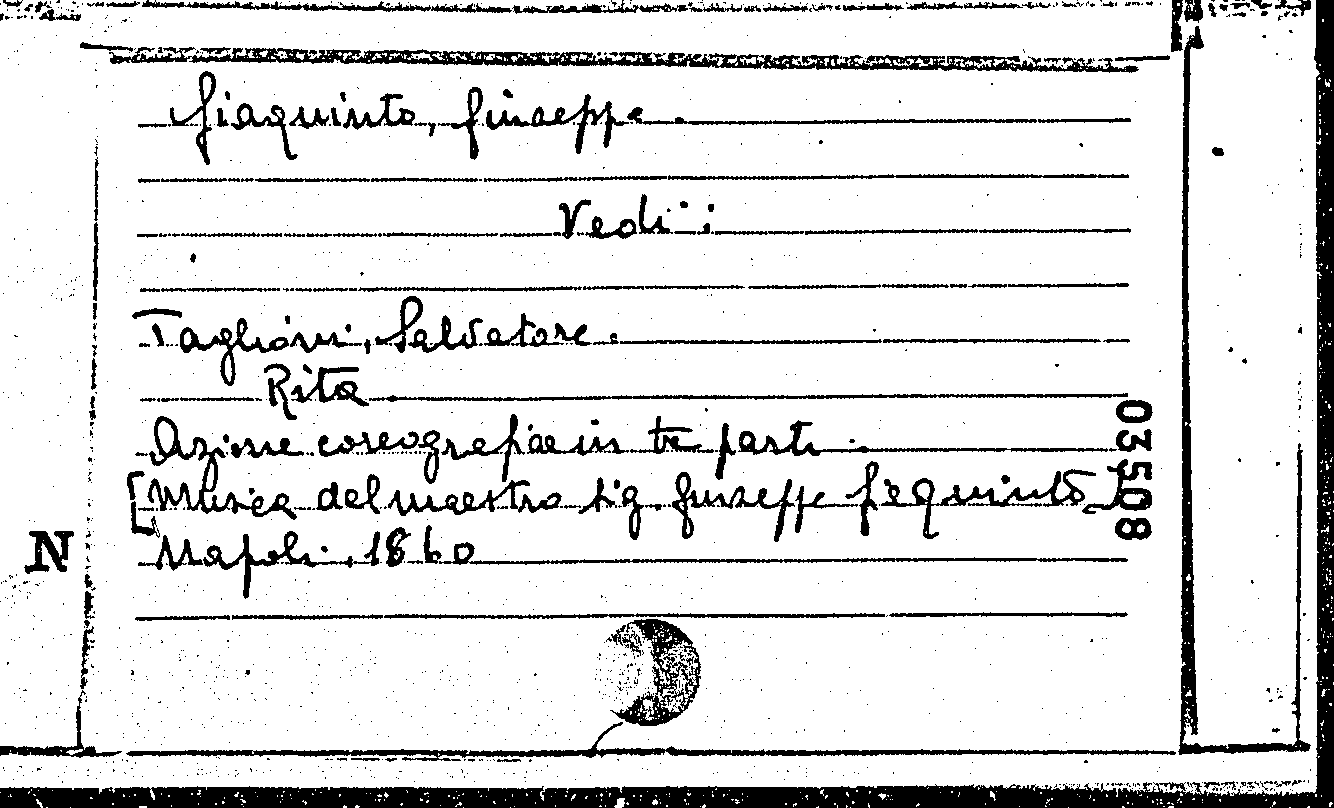 Giaquinto, Giuseppe.
Vedi:
Taglioni, Salvatore.
Rita.
Azione coreografica in tre parti.
[Musica del maestro sig. Giuseppe Giaquinto]
Napoli, 1860
03508
N